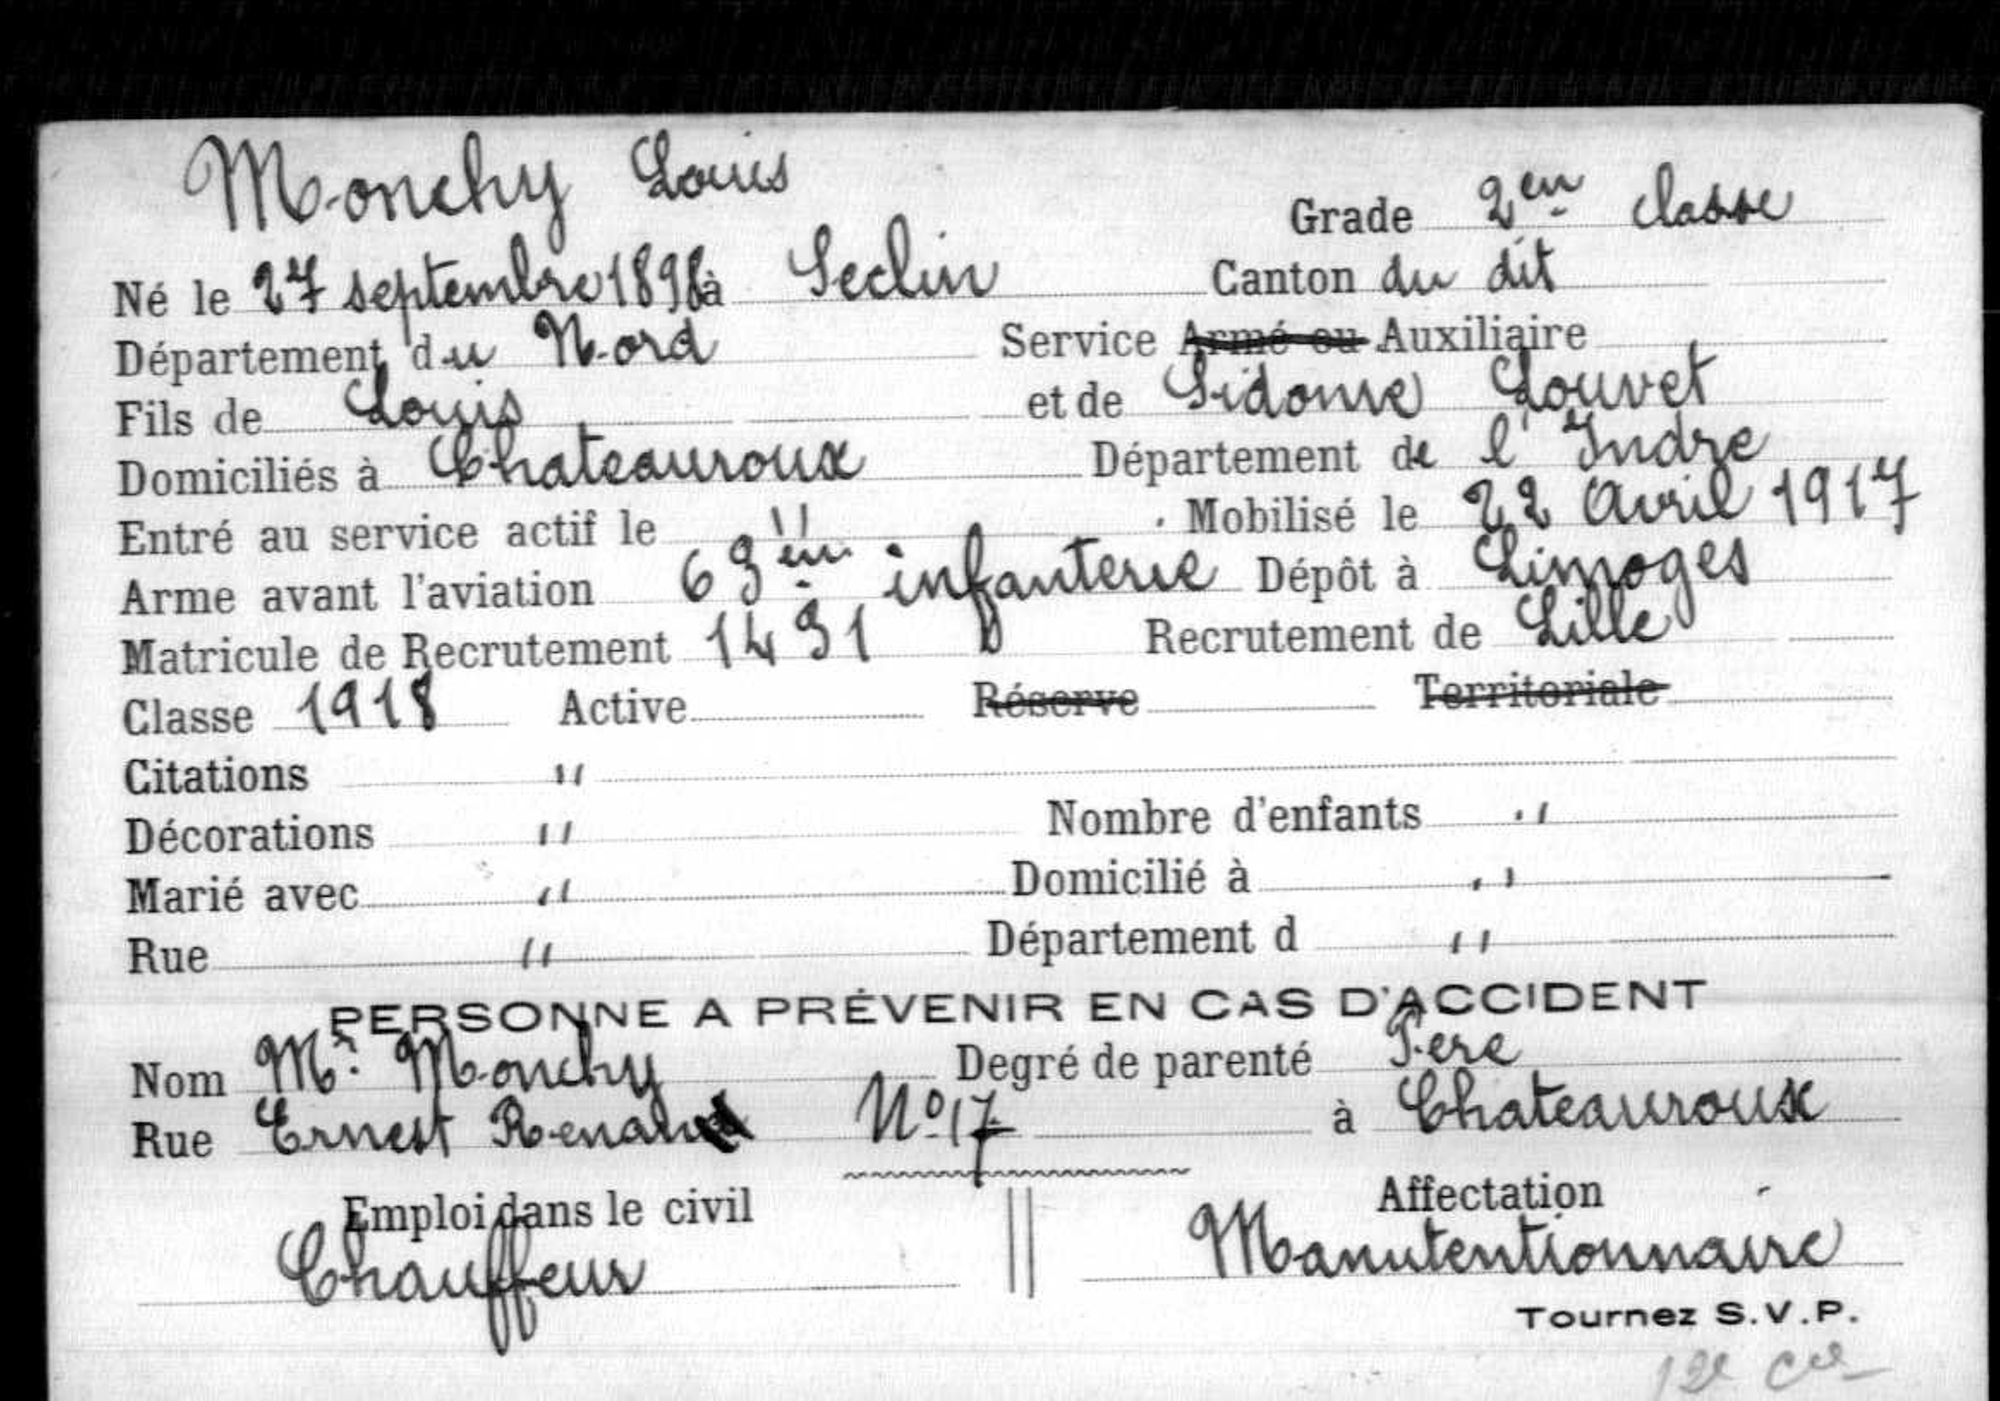 Monchy Louis
Grade 2em classe
Né le 27 septembre 1898 à Seclin Canton du dit
Département du Nord Service Armé ou Auxiliaire
Fils de Louis et de Sidonie Louvet
Domiciliés à Chateauroux Département de l'Indre
Entré au service actif le " Mobilisé le 22 Avril 1917
Arme avant l'aviation 63ème infanterie Dépôt à Limoges
Matricule de Recrutement 1431 Recrutement de Lille
Classe 1918 Active Réserve Territoriale
Citations "
Décorations " Nombre d'enfants "
Marié avec " Domicilié à "
Rue " Département d "
PERSONNE A PRÉVENIR EN CAS D'ACCIDENT
Nom Mr. Monchy Degré de parenté Père
Rue Ernest Renan No 17 à Chateauroux
Emploi dans le civil Affectation
Chauffeur Manutentionnaire
Tournez S.V.P.